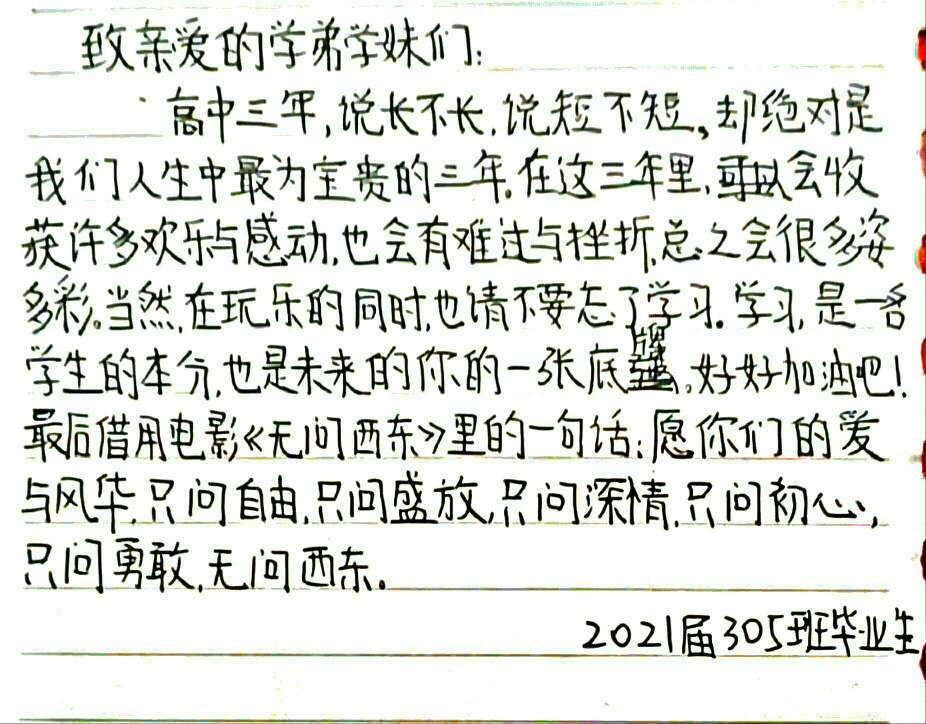 致亲爱的学弟学妹们:
高中三年,说长不长,说短不短,却绝对是
我们人生中最为宝贵的三年.在这三年里,会收
获许多欢乐与感动,也会有难过与挫折,总之会很多姿
多彩。当然,在玩乐的同时,也请不要忘了学习.学习,是一名
学生的本分,也是未来的你的一张底牌,好好加油吧!
最后借用电影《无问西东》里的一句话:愿你们的爱
与风华,只问自由,只问盛放,只问深情,只问初心,
只问勇敢,无问西东.
2021届305班毕业生